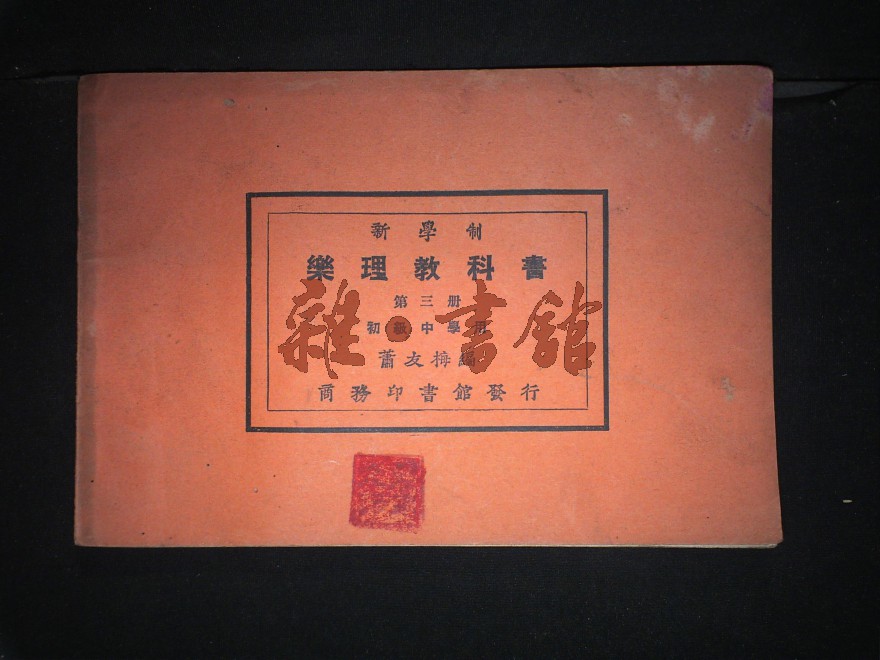 新學制
樂理教科書
第三册
初級中學用
蕭友梅編
商務印書館發行
雜·書館